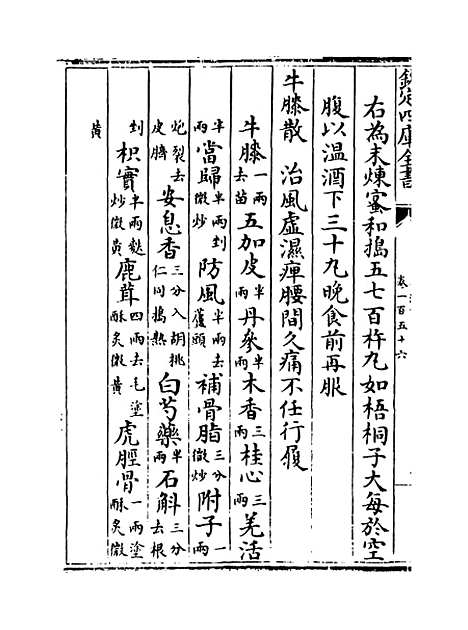 欽定四庫全書
卷一百五十六
右為末煉蜜和搗五七百杵丸如梧桐子大每於空
腹以温酒下三十丸晚食前再服
牛膝散　治風虛濕痺腰間久痛不任行履
牛膝一兩去苗　五加皮半兩　丹參半兩　木香三兩　桂心三兩　羌活
半兩　當歸半兩剉微炒　防風半兩去蘆頭　補骨脂三分微炒　附子一兩
炮裂去皮臍　安息香三分入胡桃仁同搗熟　白芍藥半兩　石斛三分去根
剉　枳實半兩麩炒微黃　鹿茸四兩去毛塗酥炙微黃　虎脛骨一兩塗酥炙微
黃